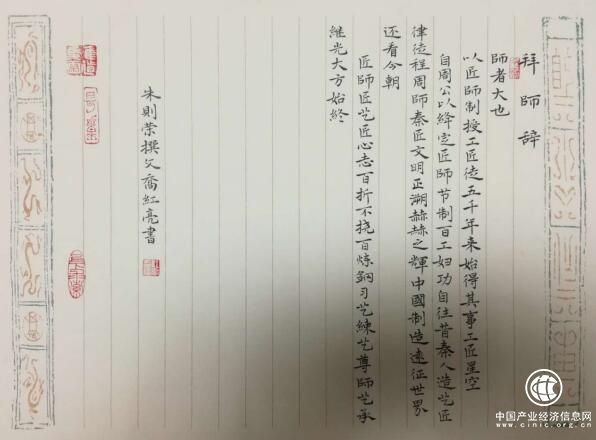 拜師辞
師者大也
以匠師制授工匠徒五千年来始得其事工匠星空
自周公以绛定匠师节制百工妇功自往昔秦人造艺匠
律徒程周师秦匠文明正溯赫赫之輝中國制造遠征世界
还看今朝
匠師匠艺匠心志百折不挠百炼鋼习艺練艺尊师艺承
继光大方始終
朱則荣撰文喬紅亮書
中国产业经济信息网
www.cinic.org.cn